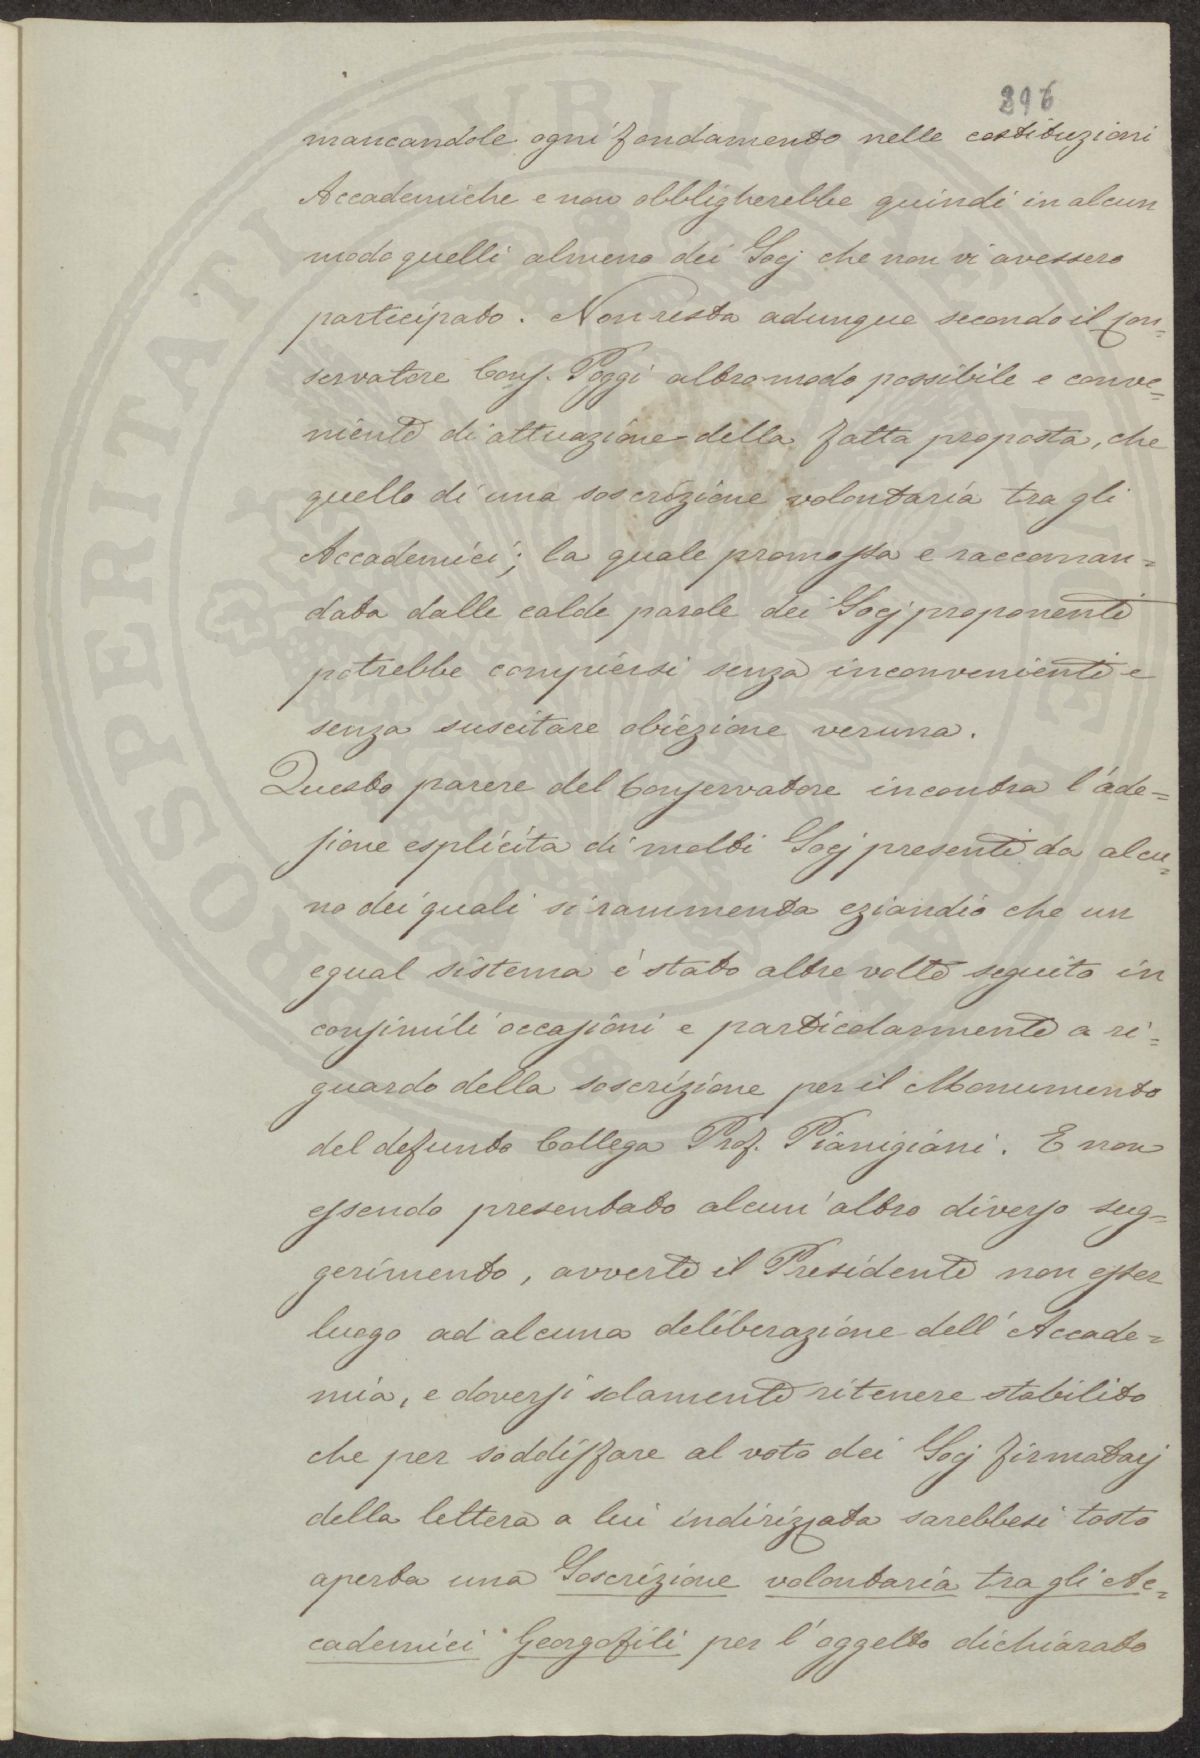 396
mancandole ogni fondamento nelle costituzioni
Accademiche e non obbligherebbe quindi in alcun
modo quelli almeno dei Socj che non vi avessero
participato. Non resta adunque secondo il Con-
servatore Cons. Poggi altro modo possibile e conve-
niente di attuazione della fatta proposta, che
quello di una soscrizione volontaria tra gli
Accademici; la quale promossa e raccoman-
data dalle calde parole dei Socj proponenti
potrebbe compiersi senza inconvenienti e
senza suscitare obiezione veruna.
Questo parere del Conservatore incontra l'ade-
sione esplicita di molti Socj presenti da alcu-
no dei quali si rammenta eziandio che un
egual sistema è stato altre volte seguito in
consimili occasioni e particolarmente a ri-
guardo della soscrizione per il Monumento
del defunto Collega Prof. Pianigiani. E non
essendo presentato alcun'altro diverso sug-
gerimento, avverte il Presidente non esser
luogo ad alcuna deliberazione dell'Accade-
mia, e doversi solamente ritenere stabilito
che per soddisfare al voto dei Socj firmatarj
della lettera a lui indirizzata sarebbesi tosto
aperta una Soscrizione volontaria tra gli Ac-
cademici Georgofili per l'oggetto dichiarato
PROSPERITATI PUBLICAE AUGENDAE